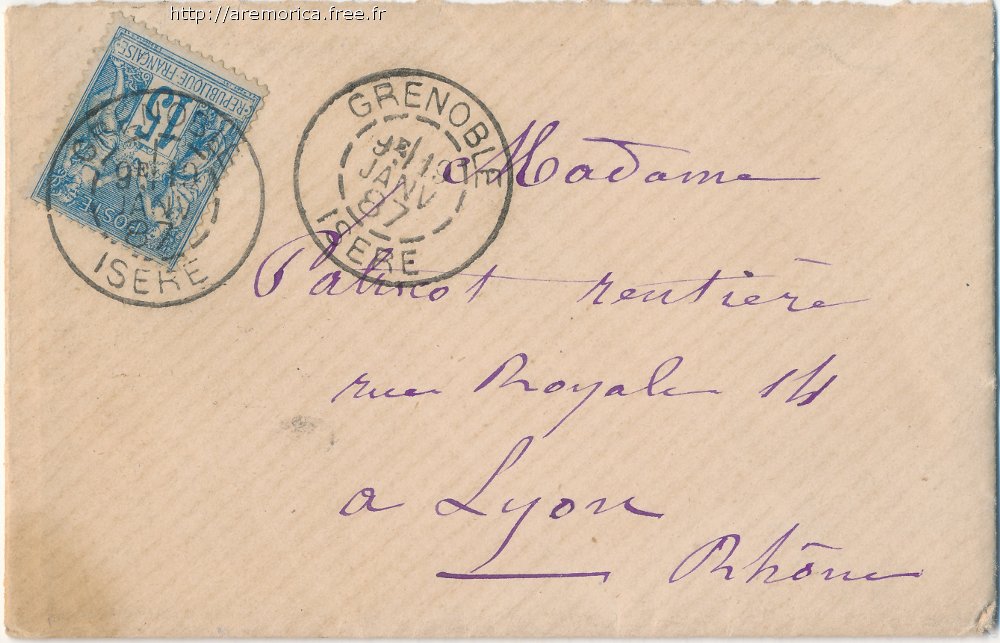 http://aremorica.free.fr
REPUBLIQUE FRANÇAISE
15
POSTE
GRENOBLE
9E 13
JANV
87
ISERE
GRENOBLE
9E 13
JANV
87
ISERE
Madame
Patricot rentière
rue Royale 14
a Lyon
Rhône